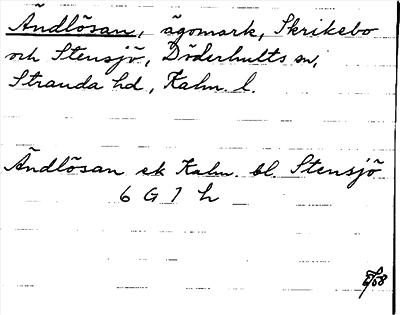 Ändlösan, ägomark, Skrikebo
och Stensjö, Döderhults sn,
Stranda hd, Kalm. l.
Ändlösan ek Kalm. bl. Stensjö
6 G 1 h